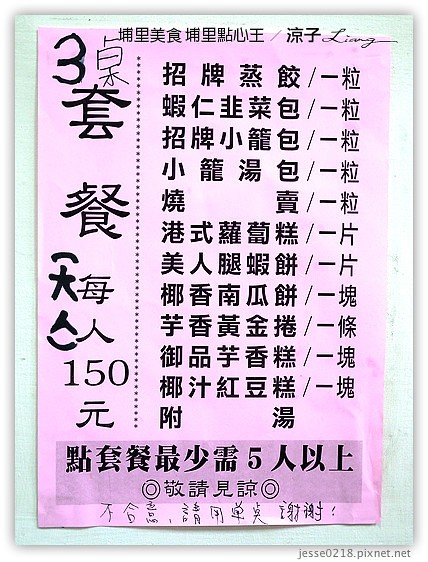 埔里美食 埔里點心王 / 涼子 Liang
3桌
套餐
(天公)
每人
150
元
招牌蒸餃/一粒
蝦仁韭菜包/一粒
招牌小籠包/一粒
小籠湯包/一粒
燒賣/一粒
港式蘿蔔糕/一片
美人腿蝦餅/一片
椰香南瓜餅/一塊
芋香黃金捲/一條
御品芋香糕/一塊
椰汁紅豆糕/一塊
附湯
點套餐最少需5人以上
◎敬請見諒◎
不合意,請用单点 謝謝!
jesse0218.pixnet.net